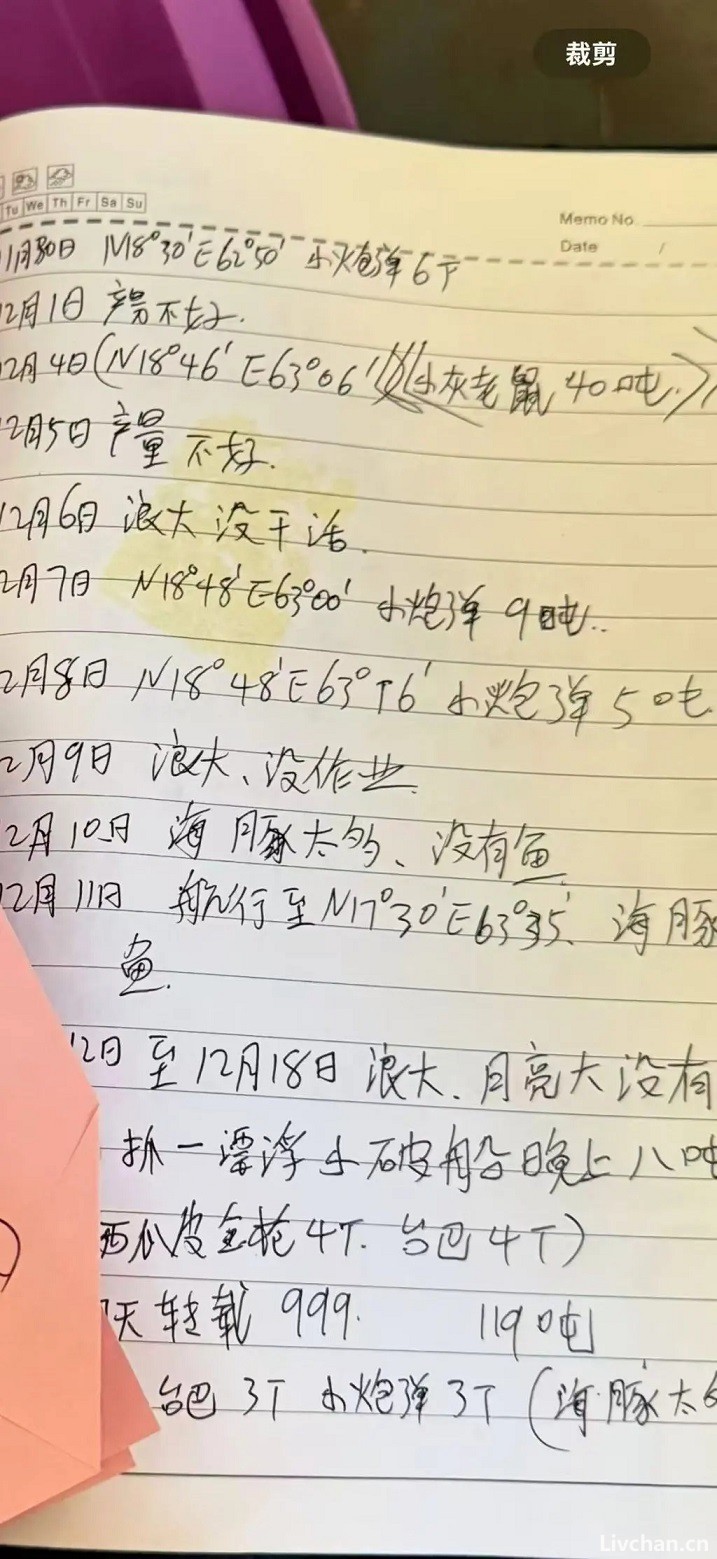 裁剪
Tu We Th Fr Sa Su
Memo No.
Date /
11月30日 N18°30′E62°50′ 小炮弹6T
12月1日 产量不好.
12月4日(N18°46′ E63°06′)(小灰老鼠 40吨.)
2月5日 产量 不好.
12月6日 浪大没干活.
2月7日 N18°48′E63°00′ 小炮弹 9吨..
2月8日 N18°48′E63°16′小炮弹 5吨
2月9日 浪大、没作业.
2月10日 海豚太多、没有鱼
12月11日 航行至N17°30′E63°35′、海豚
鱼.
12日 至12月18日 浪大、月亮大没有
抓一漂浮小破船晚上八吨
西瓜皮金枪4T. 台巴4T)
天转载 999. 119吨
台巴 3T 小炮弹 3T (海豚太
Livchan.cn